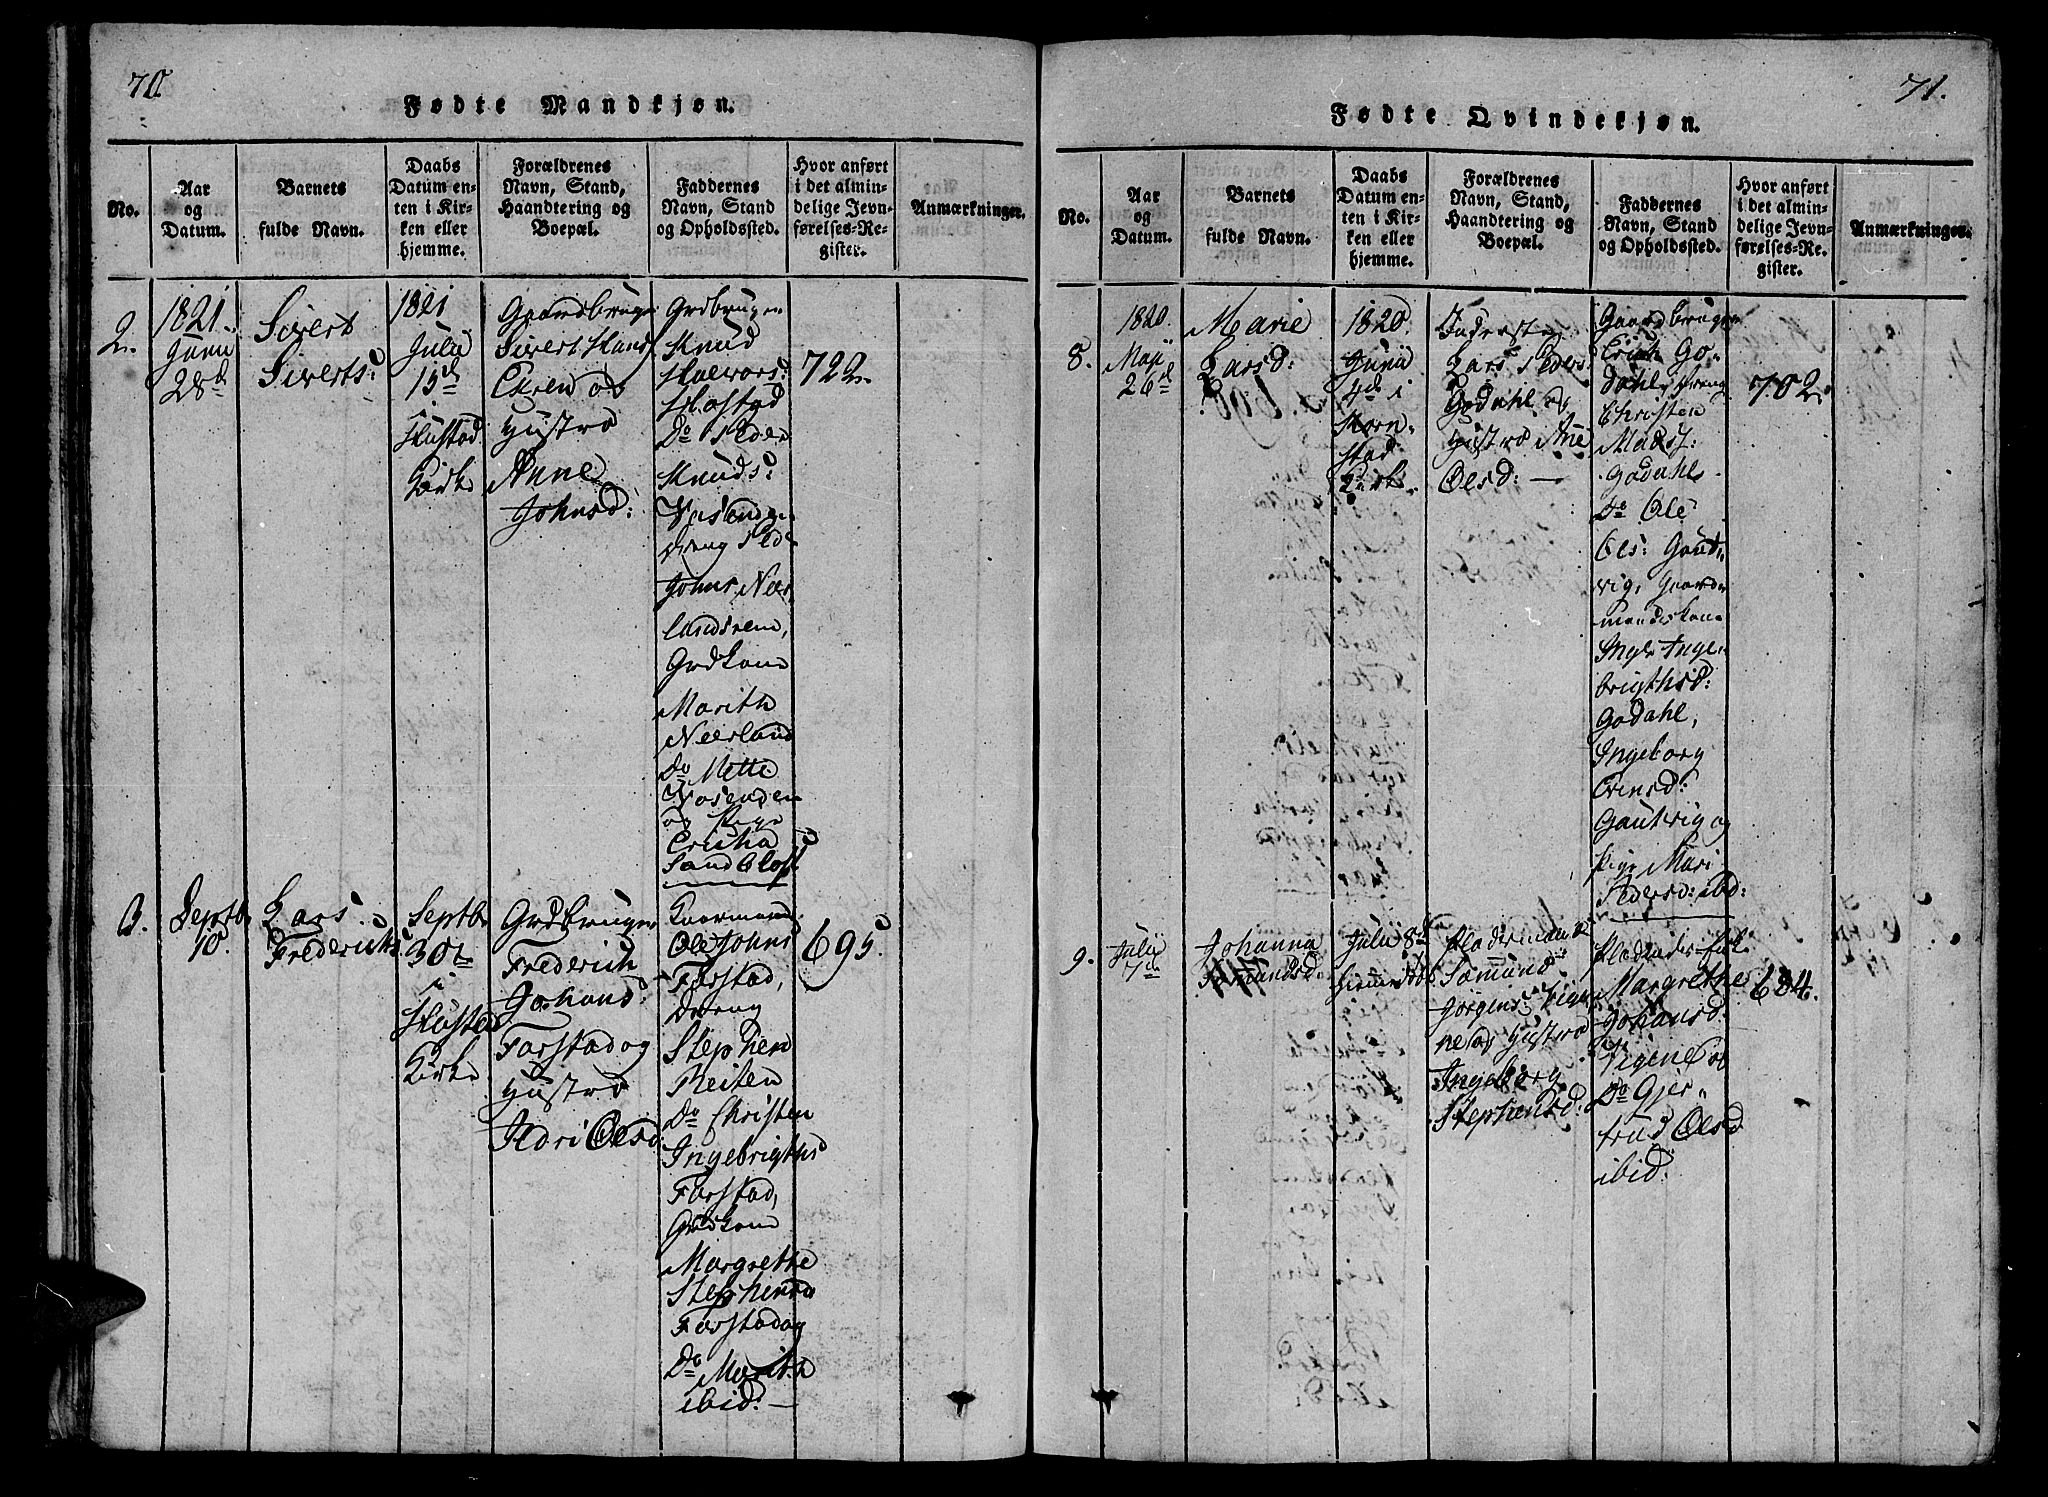 70.
Fødte Mandkjøn.
No.
Aar
og
Datum.
Barnets
fulde Navn.
Daabs
Datum en-
ten i Kir-
ken eller
hjemme.
Forældrenes
Navn, Stand,
Haandtering og
Boepæl.
Faddernes
Navn, Stand
og Opholdssted.
Hvor anført
i det almin-
delige Jevn-
førelses-Re-
gister.
Anmærkninger.
2.
1821.
Junii
28d
Sivert
Siverts:
1821
Julii
15d
i
Hustad
Kirke
Gaardbruger
Sivert Hans
Ekren og
Hustro
Anne
Johnsd:
Grdbruger
Knud
Halvors:
Hostad
Do Peder
Knuds:
Vasenden
dreng Peder
Johns Neer
landsrem,
Grdkone
Marith
Neerland
Do Mette
Vasenden
og Pige
Ericha
Sandblost
722.
3.
Septb
10.
Lars
Frederichs
Septbr
30te
i
Hustad
Kirke
Grdbruger
Frederich
Johans:
Farstad og
Hustro
Ildri Olsd
Gaarmand
Ole Johns
Farstad,
Dreng
Stephen
Reiten
Do Christen
Ingebrigths
Farstad,
Grdkone
Margrethe
Stephensd
Farstad og
Do Marith
ibid:
695.
71.
Fødte Qvindekjøn.
No.
Aar
og
Datum.
Barnets
fulde Navn.
Daabs
Datum en-
ten i Kir-
ken eller
hjemme.
Forældrenes
Navn, Stand,
Haandtering og
Boepæl.
Faddernes
Navn, Stand
og Opholdssted.
Hvor anført
i det almin-
delige Jevn-
førelses-Re-
gister.
Anmærkninger.
8.
1820.
Maji
26d
Marie
Larsd:
1820.
Junii
4de i
Storn-
stad
Kirke
Inderste
Lars Peders
Godahl og
Hustro Ane
Olsd:
Gaardbruger
Erich Go-
dahl, dreng
Christen
Mads:
Godahl
Do Ole
Ols: Gaut-
vig, Gaard-
mandskone
Ingeb Inge-
brigthsd:
Godahl,
Ingeborg
Evensd:
Gautvig og
Pige Mari
Pedersd: ibd:
702.
9.
Julii
7d
Johanna
Samundsd.
Julii 8d
hjemmedøb
Pladsmand
Samund
Jørgens: Vige
net og Hustro
Ingeborg
Stephensd:
Margrethe
Johansd:
Vigenet og
Do Gjer-
trud Olsd
ibid:
684.